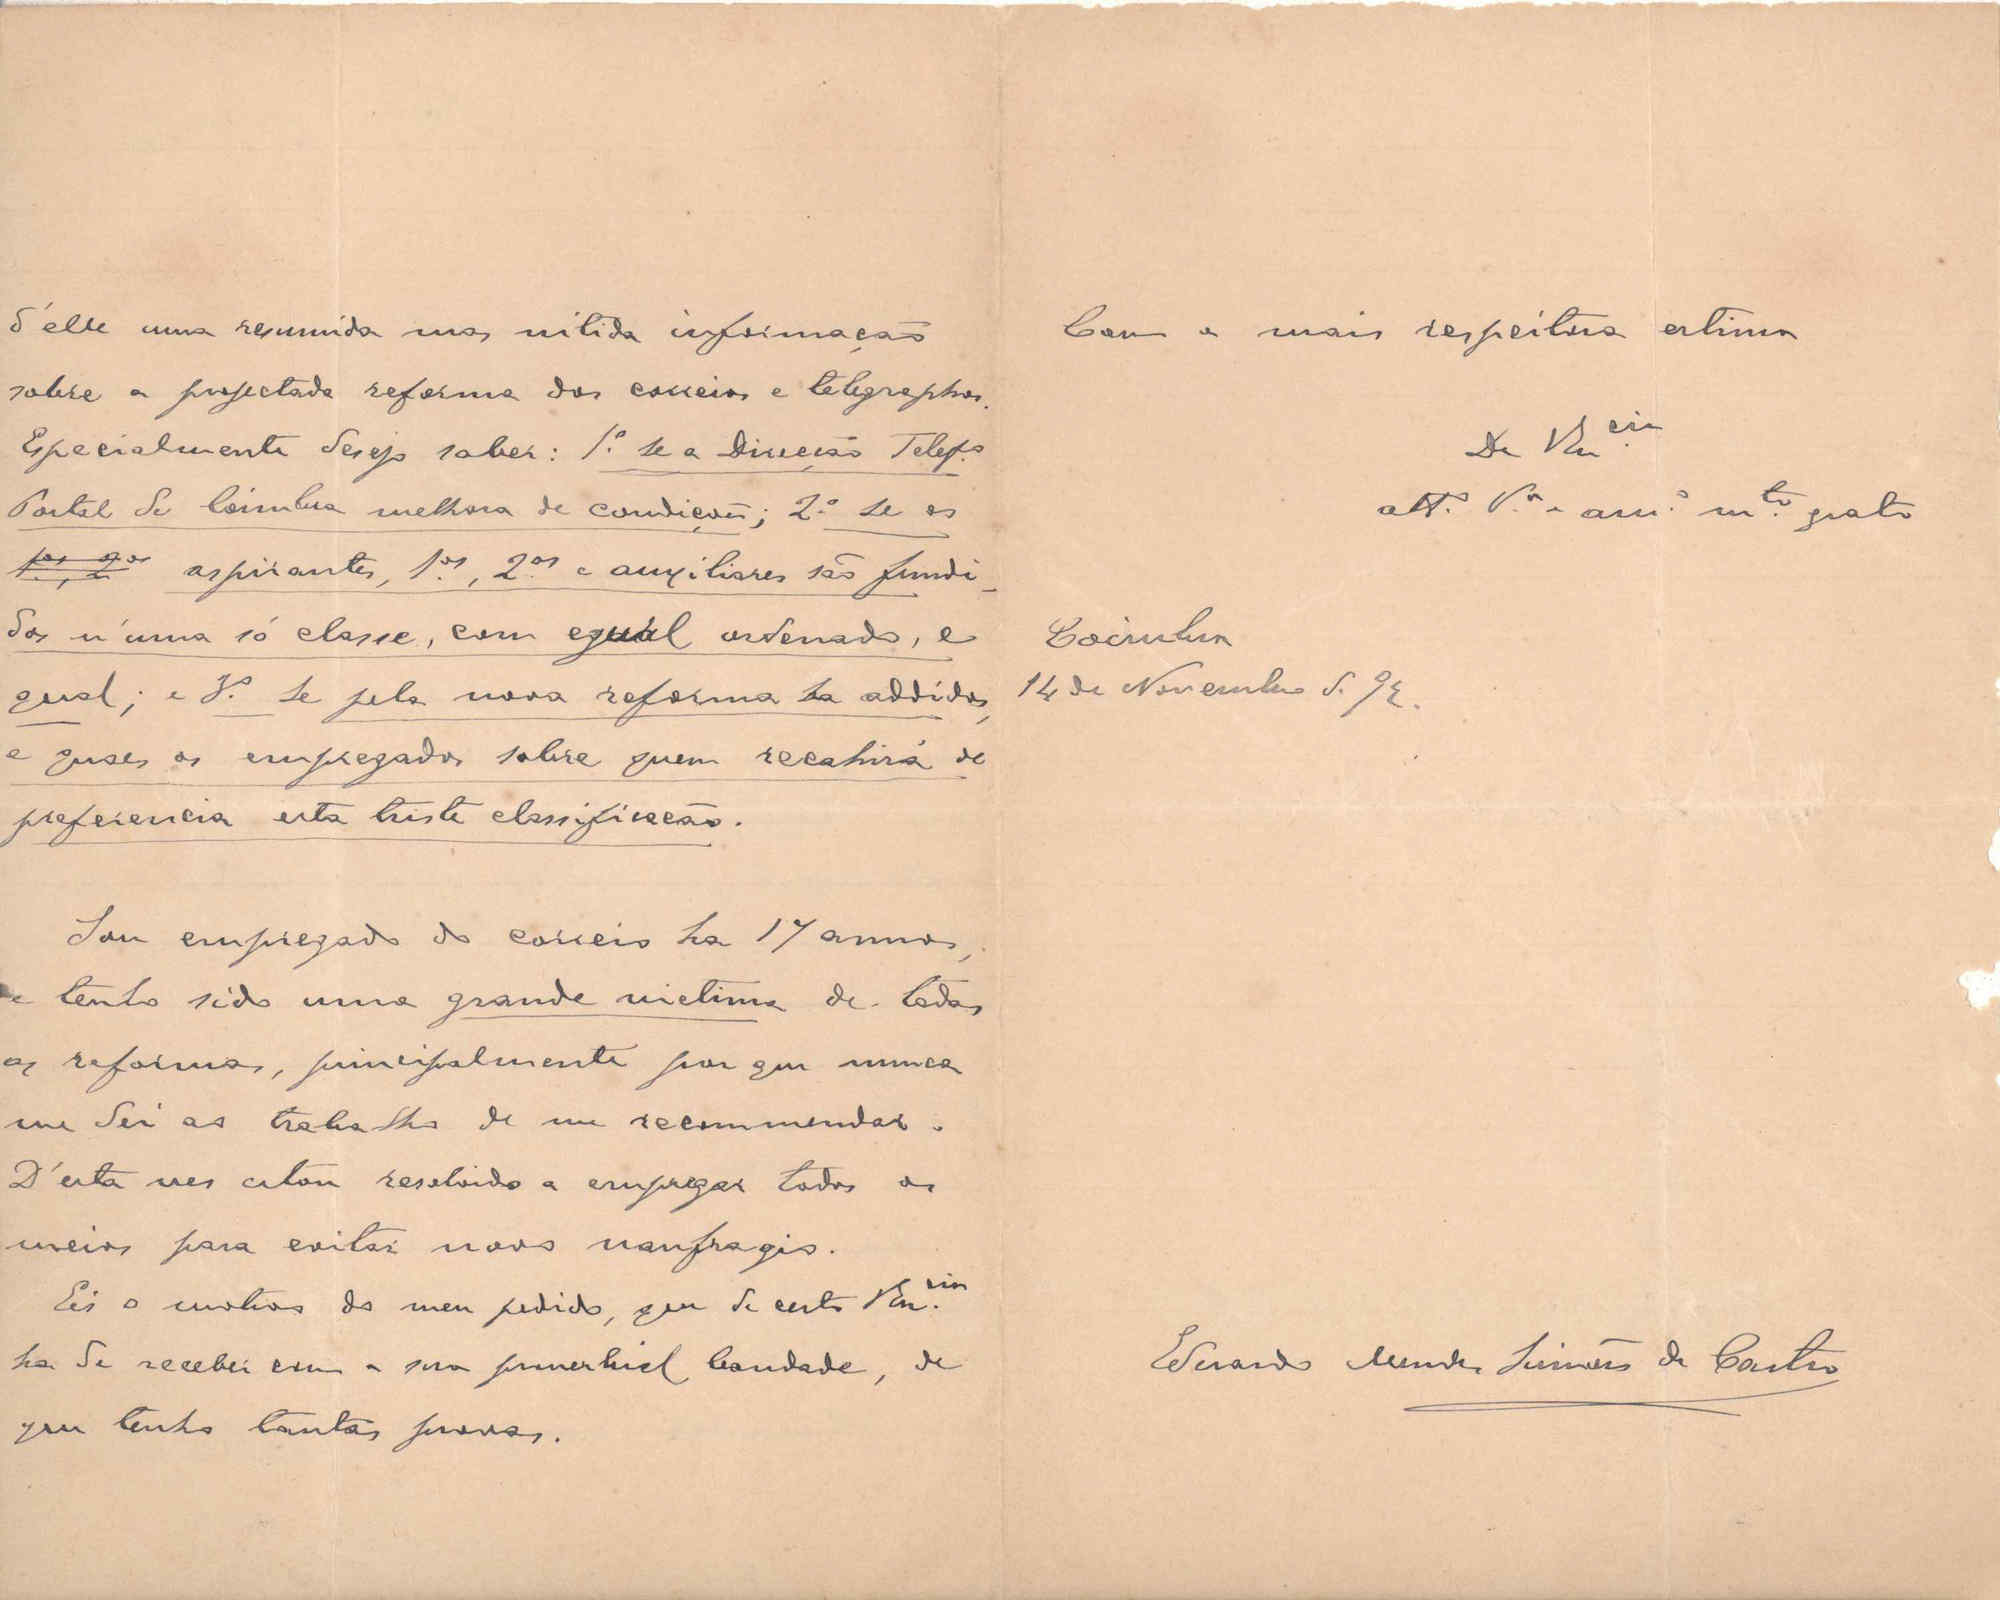 d'elle uma resumida mas nitida informação
sobre a projectada reforma dos correios e telegraphos.
Especialmente desejo saber: 1.º se a Direcção Telego
Postal de Coimbra melhora de condições; 2.º se os
1.os, 2.os aspirantes, 1.os, 2.os e auxiliares são fundi-
dos n'uma só classe, com egual ordenado, e
gual; e 3.º se pela nova reforma ha addidos,
e quaes os empregados sobre quem recahirá de
preferencia esta triste classificação.
Sou empregado do correio ha 17 annos,
e tenho sido uma grande victima de todas
as reformas, principalmente por que nunca
me dei ao trabalho de me recommendar.
D'esta ves estou resolvido a empregar todos os
meios para evitar novo naufragio.
Eis o motivo do meu pedido, que de certo V.Ex.cia
ha de receber com a sua proverbial bondade, de
que tenho tantas provas.
Com a mais respeitosa estima
De V.Ex.cia
att.º V.or e am.º m.to grato
Coimbra
14 de Novembro de 92.
Eduardo Mendes Simões de Castro